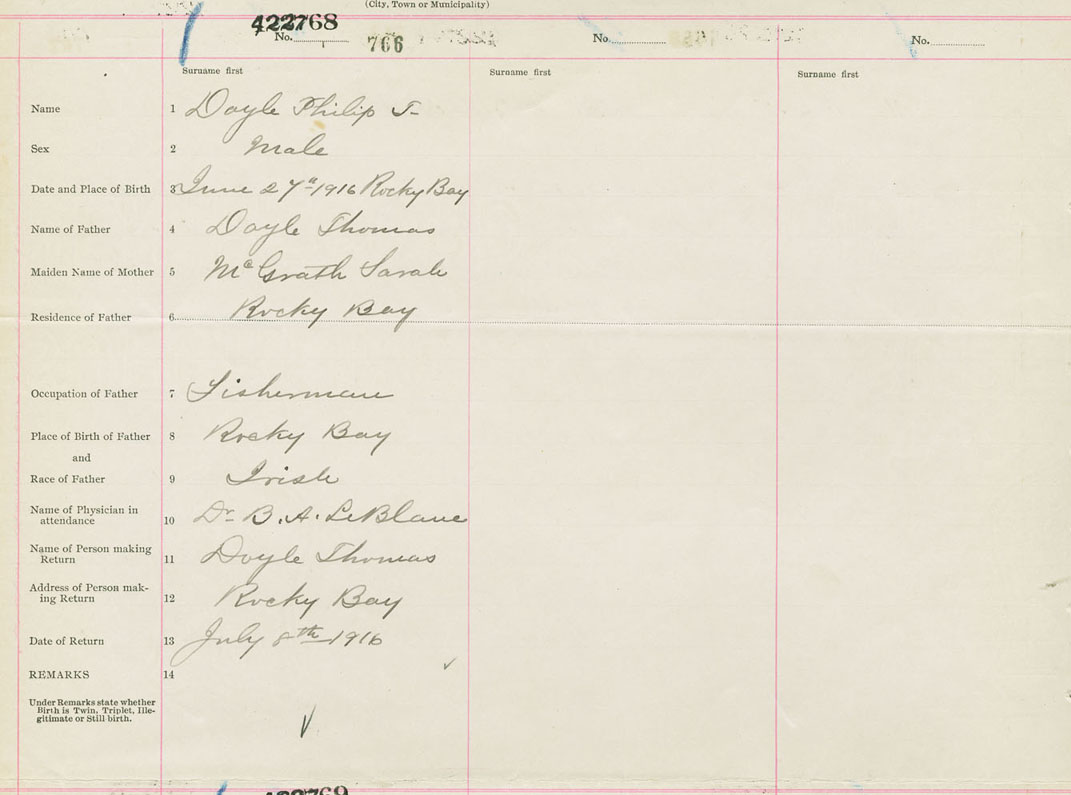 (City, Town or Municipality)
422768
No. 766 No. No.
Surname first Surname first Surname first
Name 1 Doyle Philip J-
Sex 2 Male
Date and Place of Birth 3 June 27th 1916 Rocky Bay
Name of Father 4 Doyle Thomas
Maiden Name of Mother 5 McGrath Sarah
Residence of Father 6 Rocky Bay
Occupation of Father 7 Fisherman
Place of Birth of Father 8 Rocky Bay
and
Race of Father 9 Irish
Name of Physician in
attendance 10 Dr- B. A. LeBlanc
Name of Person making
Return 11 Doyle Thomas
Address of Person mak-
ing Return 12 Rocky Bay
Date of Return 13 July 8th 1916
REMARKS 14
Under Remarks state whether
Birth is Twin, Triplet, Ille-
gitimate or Still birth.
422769